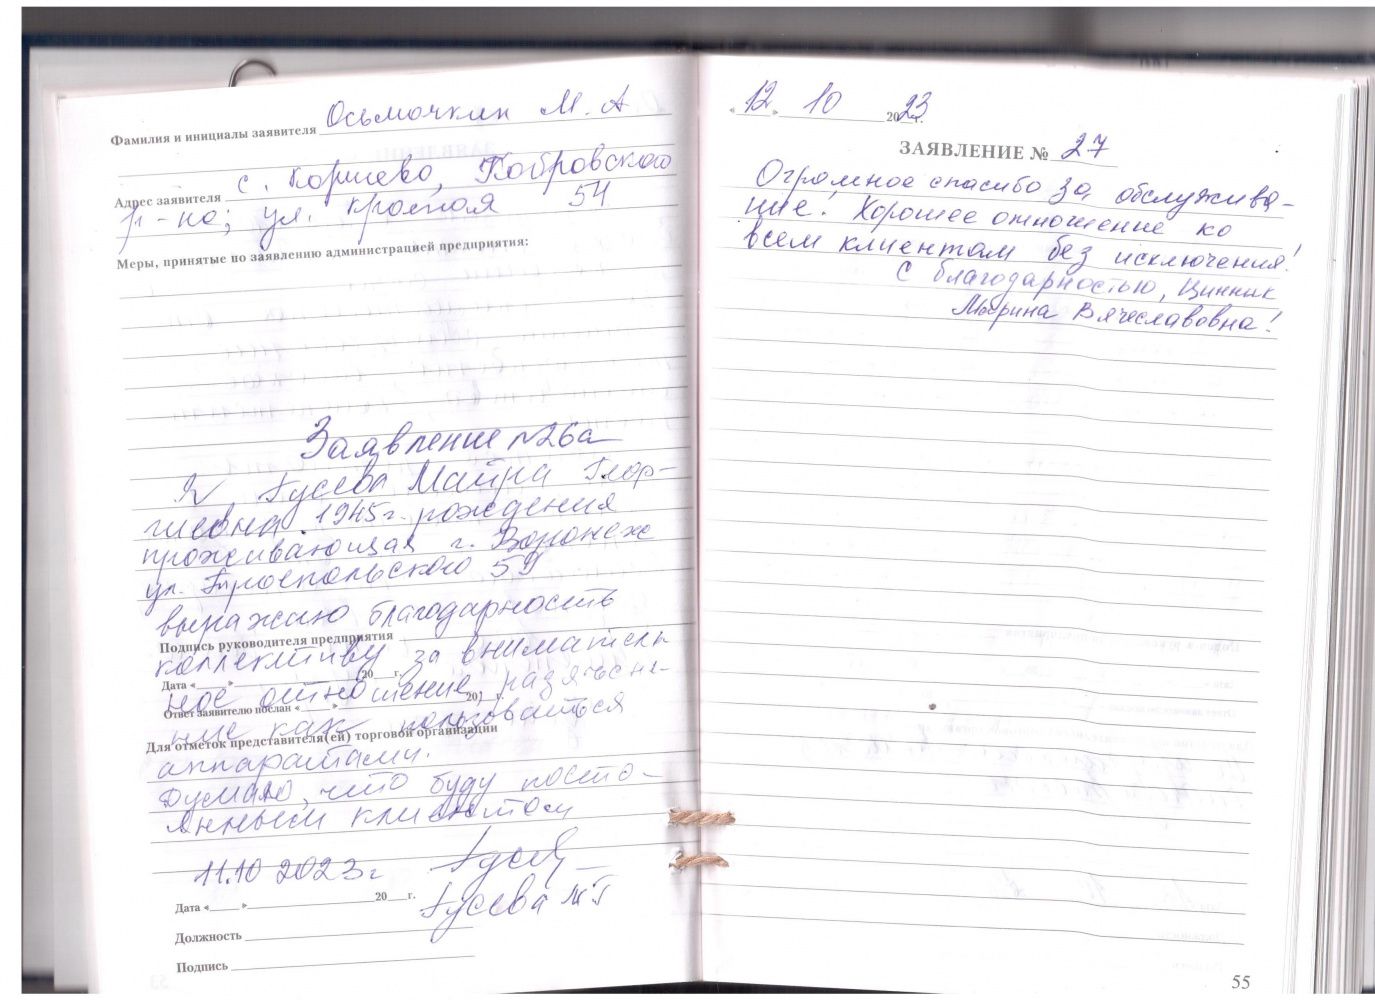 Фамилия и инициалы заявителя Осьмочкин М. А
Адрес заявителя с. Коршево, Бобровского
р-на; ул. Красная 54
Меры, принятые по заявлению администрацией предприятия:
Заявление №26а
Я, Гусева Майра Геор-
гиевна 1945г. рождения
проживающая г. Воронеж
ул. 59
выражаю благодарность
Подпись руководителя предприятия
коллективу за вниматель
Дата « » 20 г.
ное отношение,
Ответ заявителю послан « » 201 г.
ние как пользоваться
Для отметок представителя(ей) торговой организации
аппаратами.
Думаю, что буду посто-
янным клиентом
11.10 2023г
Дата « » 20 г.
Гусева М Г
Должность
Подпись
53
«12» 10 2023 г.
ЗАЯВЛЕНИЕ № 27
Огромное спасибо за обслужива-
ние! Хорошее отношение ко
всем клиентам без исключения!
С благодарностью, Цинник
Марина Вячеславовна!
55